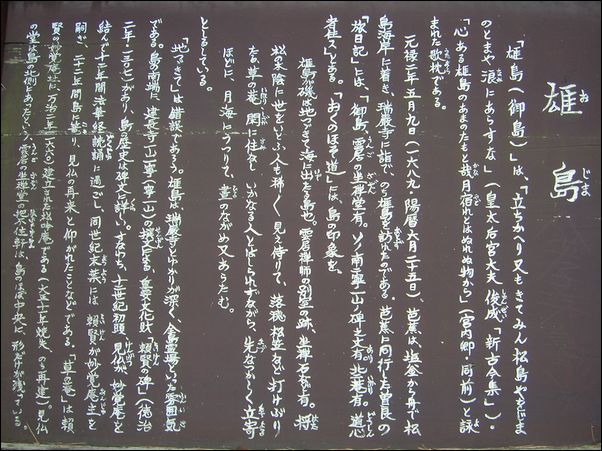 雄島
おじま
「雄島（御島）」は、「立ちかへり又もきてみん松島やをじま
のとまや浪にあらすな」（皇太后宮大夫俊成「新古今集」）・
「心ある雄島のあまのたもと哉月宿れとはぬれぬ物から」（宮内卿・同前）と詠
まれた歌枕である。
元禄二年五月九日（一六八九・陽暦六月二十五日）、芭蕉は、塩釜から舟で松
島海岸に着き、瑞巌寺に詣で、のち雄島を訪れたのである。芭蕉に同行した曽良の
「旅日記」には、「御島、雲居ノ坐禅堂有。ソノ南ニ寧一山ノ碑之文有。北ニ庵有。道心
者住ス」とある。「おくのほそ道」には、島の印象を、
雄島が磯は地つゞきて海に出たる島也。雲居禅師の別室の跡、坐禅石など有。将
松の木陰に世をいとふ人も稀々見え侍りて、落穂・松笠など打けぶり
たる草の菴閑に住なし、いかなる人とはしられずながら、先なつかしく立寄
ほどに、月海にうつりて、昼のながめ又あらたむ。
としるしている。
「地つゞきて」は錯誤である。雄島は、瑞巌寺とゆかりが深く、全島霊場といった雰囲気
である。島の南端に、建長寺一山一寧（寧一山）の撰文になる、重要文化財「頼賢の碑」（徳治
二年・一三〇七）があり、島の歴史は碑文に詳しい。すなわち、十二世紀初頭、見仏が妙覚庵を
結んで十二年間法華経読誦に過ごし、同世紀末葉には、頼賢が妙覚庵主を
嗣ぎ、二十二年間島に籠り、見仏の再来と仰がれたことなどである。「草の菴」は、頼